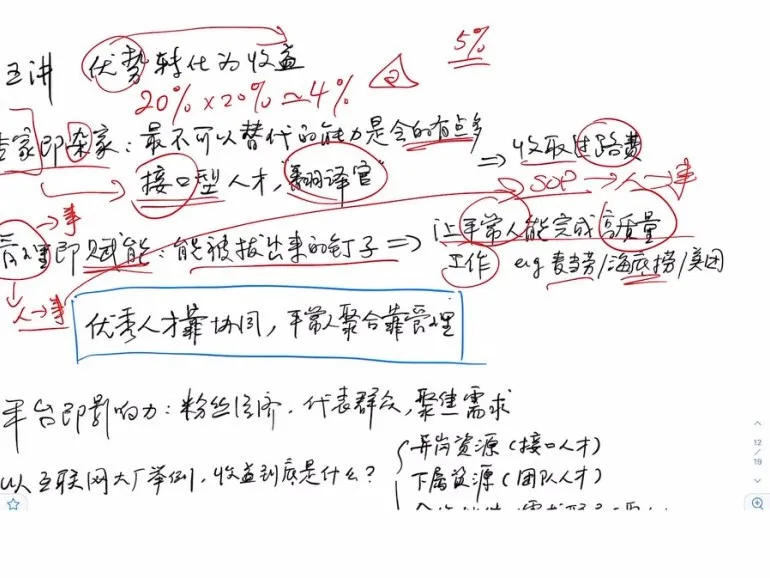 5%
五讲 优势转化为收益
20% × 20% ≃ 4% 2
专家即杂家：最不可以替代的能力是会的有点多 ⇒ 收取过路费
接口型人才，"翻译官" SOP → 人 → 事
→ 事
管理即赋能：能被拔出来的钉子 ⇒ 让平常人能完成高质量
工作 eg 麦当劳/海底捞/美团
人 → 事
优秀人才靠协同，平常人聚合靠管理
平台即影响力：粉丝经济，代表群众，聚焦需求
以互联网大厂举例，收益到底是什么？
异岗资源（接口人才）
下属资源（团队人才）
12
/
19